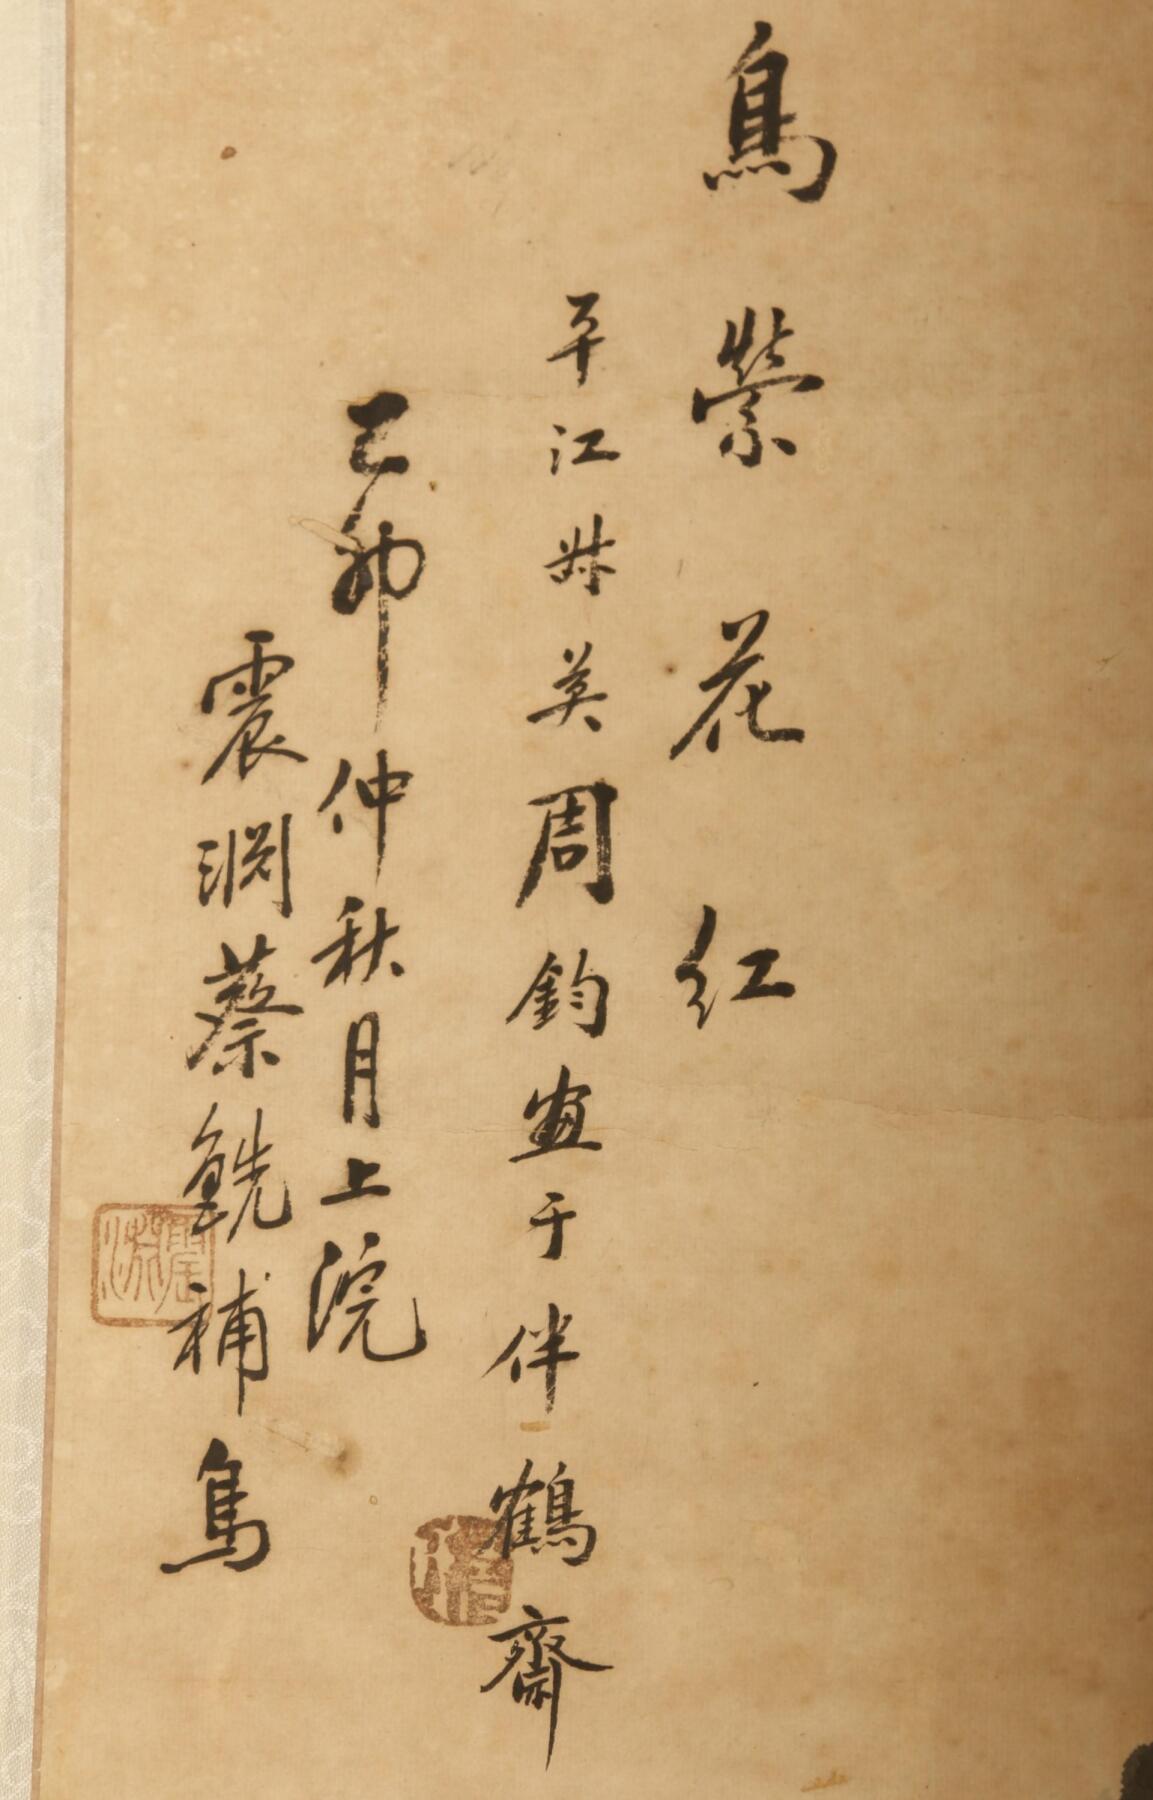 鳥縈花紅
平江妹英周鈞畫于伴鶴齋
己卯仲秋月上浣
震渊蔡銑補鳥
震淵